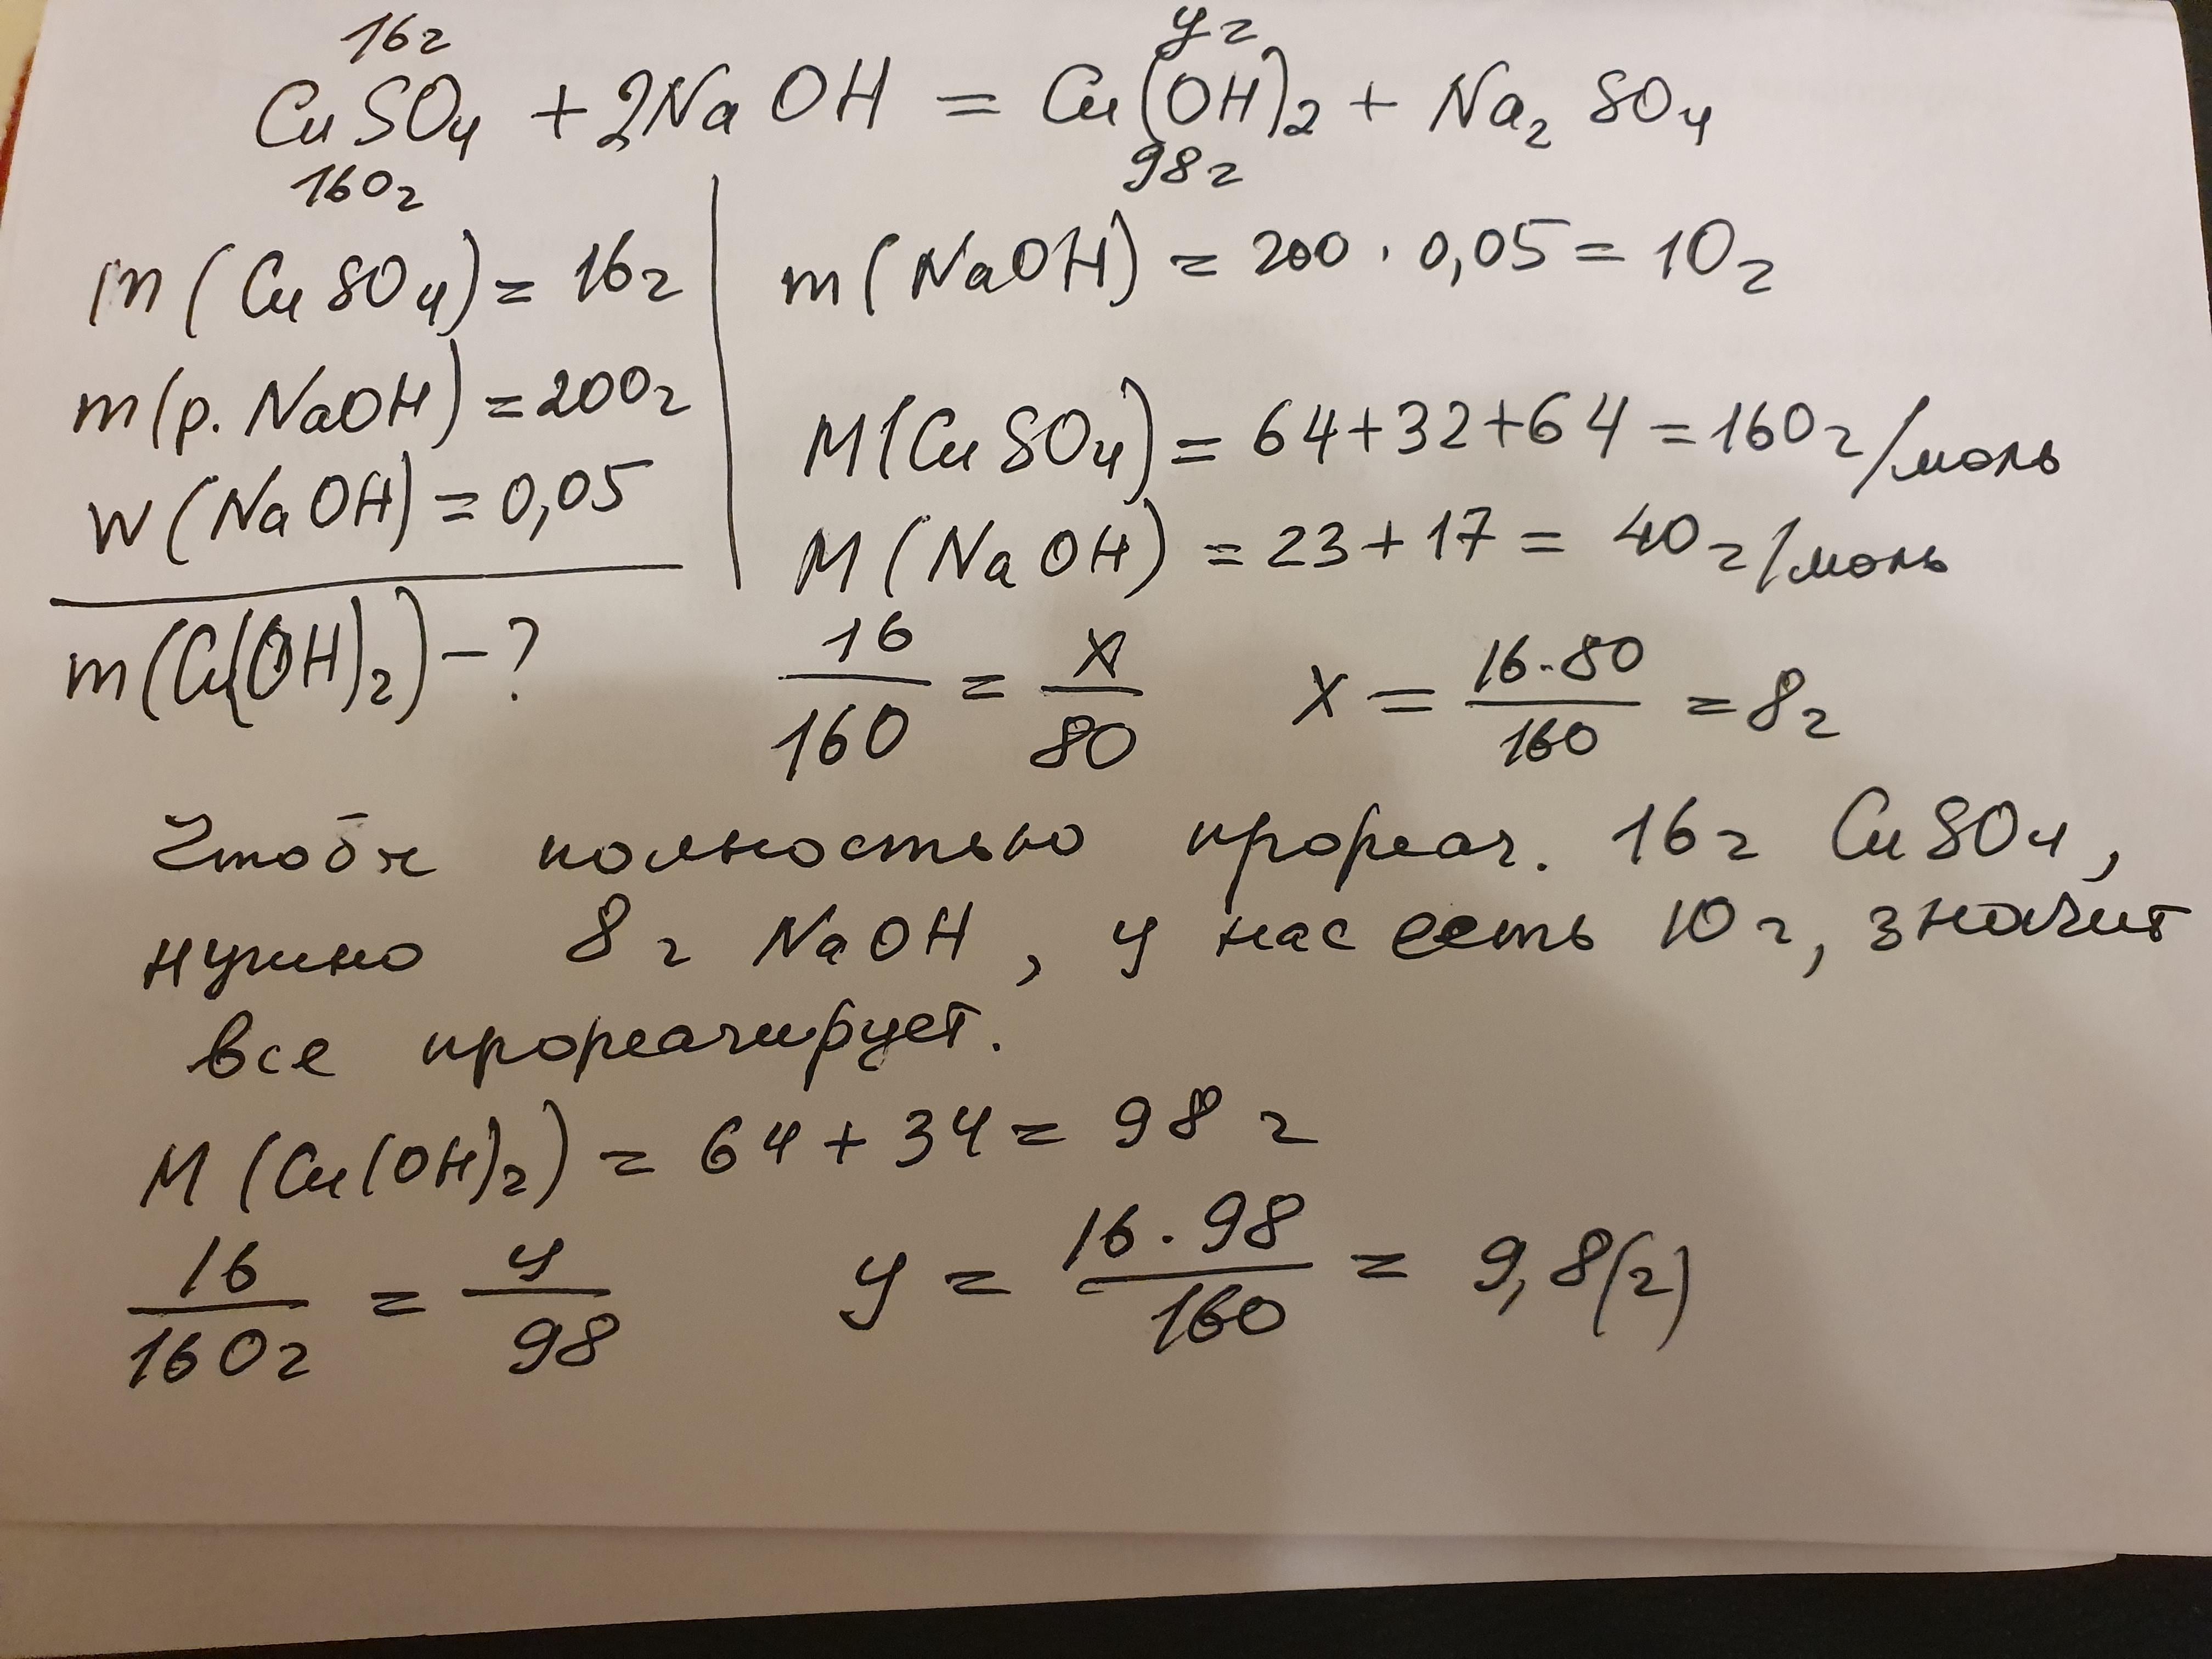 16г уг
CuSO₄ + 2NaOH = Cu(OH)₂ + Na₂SO₄
160г 98г
m(CuSO₄) = 16г
m(р. NaOH) = 200г
W(NaOH) = 0,05
m(Cu(OH)₂) - ?
m(NaOH) = 200 · 0,05 = 10г
M(CuSO₄) = 64+32+64 = 160г/моль
M(NaOH) = 23+17 = 40г/моль
16/160 = x/80 x = 16·80/160 = 8г
Чтобы полностью прореаг. 16г CuSO₄,
нужно 8г NaOH, у нас есть 10г, значит
все прореагирует.
M(Cu(OH)₂) = 64+34 = 98г
16/160г = у/98 у = 16·98/160 = 9,8(г)